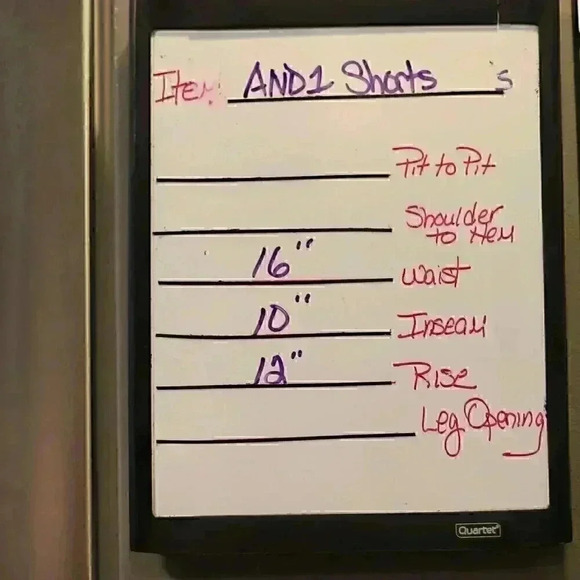 Item AND1 Shorts s
Pit to Pit
Shoulder
to Hem
16" Waist
10" Inseam
12" Rise
Leg Opening
Quartet